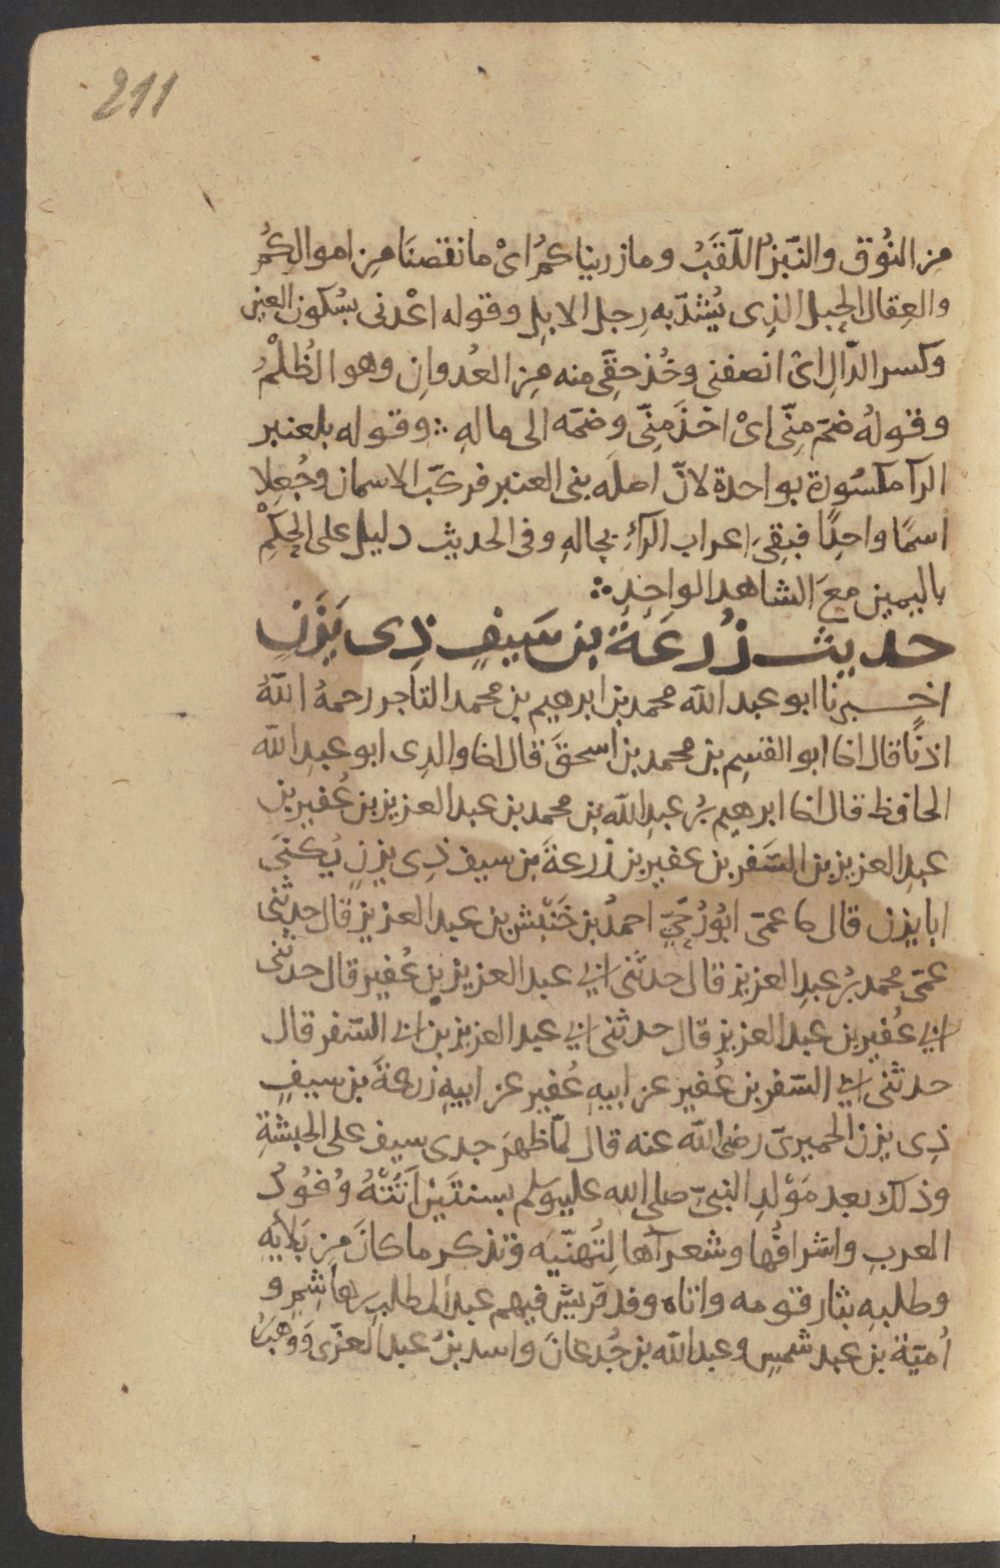 211
مِن النُوق والنَّبَزُ اللّقَبُ وما زريناكمُ اىْ ما نقصنَا مِن اموالِكُم
والعِقال الحِبل الذِى يُشدّ بهِ رِجل الابِلِ وقوله اعْدنى بسُكونِ العين
وكسر الدّالِ اىْ انصفنى وخُذ حقّى منه مِن العُدوانِ وهو الظُلْمُ
وقولهُ ضمّ مِنّى اىْ اخَذَ مِنّى وضمّه الى مالهِ ؞ وقوله بلعنبر
الرآ مكسُورة بواحدة لانّ اصله بنى العنبر فركّبَ الاسمان وجُعِلا
اسمًا واحِدًا فبقِىَ اعراب الرآءِ بحالهِ وفى الحديث دليل على الحكمِ
باليمين معَ الشاهد الواحِدِ ؞
حديث زُرعَةَ بن سَيفِ ذِى يَزَنٍ
اخبرنا ابو عبد اللّه محمد بن ابرهيم بن محمد التاجر رحمهُ اللّهُ
اذنًا قال انا ابو القسِم بن محمد بن اسحقَ قال انا والدِى ابو عبدِ اللّه
الحافظ قال انا ابرهيم بنُ عبدِ اللّه بن محمد بن عبد العزيز بن عُفير بن
عبدِ العزيز بن السَفر بن عفير بن زرعةَ بن سيف ذِى يزنٍ يُكنَى
ابا يزن قال ثا عمّى ابُو رُخَىّ احمدُ بن خَنْبش بن عبد العزيز قال حدثنى
عمّى محمد بنُ عبدِ العزيز قال حدثنى ابى عبد العزيز بن عُفير قال حدثنى
ابى عُفير بن عبد العزيزِ قال حدثنى ابى عبد العزيز بن السّفر قال
حدثنى ابى السّفر بن عُفير عن ابيهِ عُفير عن ابيهِ زرعةَ بن سيفٍ
ذِى يزن الحميرىّ رضى اللّه عنه قال لمّا ظهرَ جدى سيف على الحبشةِ
وذلك بعد مَوْلدِ النبىّ صلى الله عليه وسلم بسنتَين اتَتْهُ وُفُودُ
العربِ واشرافُها وشعرآها لِتُهنّيَه وتذكر ما كانَ مِن بَلآئِه
وطلبهِ بثار قومه واتاه وفد قريش فيهم عبد المطلب بن هاشِمٍ و
اُميّة بن عبد شمسٍ وعبد اللّه بن جُدعانَ واسد بنُ عبد العزّى ووهبُ